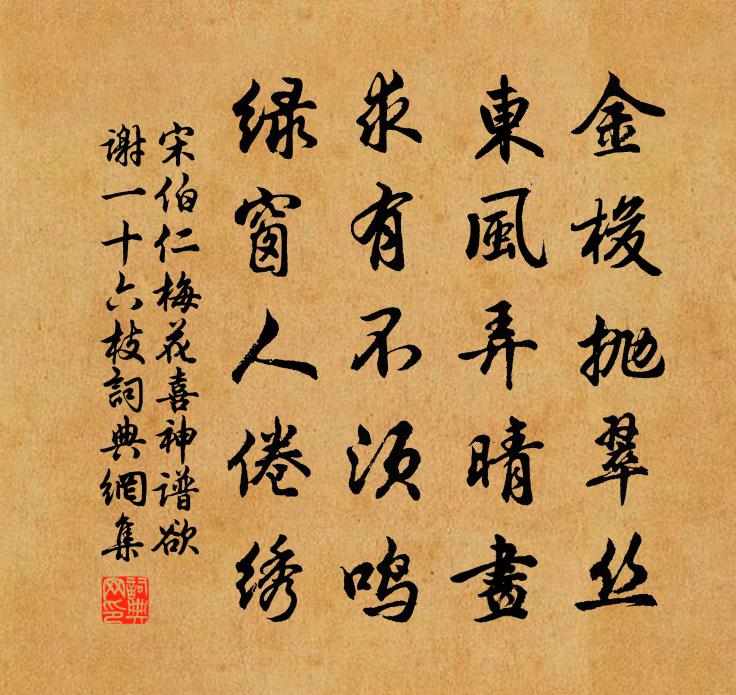 金梭抛翠丝
東風弄晴晝
求有不须鸣
绿窗人倦绣
宋伯仁梅花喜神谱欲
谢一十六枝詞典網集
詞典网印